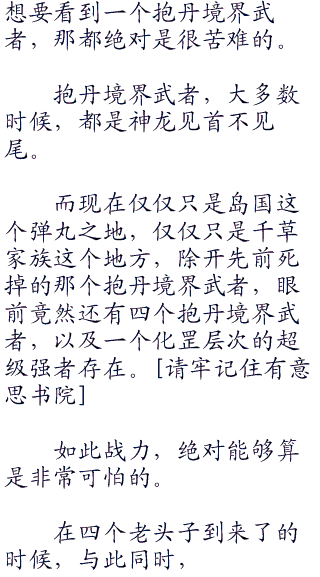 想要看到一个抱丹境界武
者，那都绝对是很苦难的。
抱丹境界武者，大多数
时候，都是神龙见首不见
尾。
而现在仅仅只是岛国这
个弹丸之地，仅仅只是千草
家族这个地方，除开先前死
掉的那个抱丹境界武者，眼
前竟然还有四个抱丹境界武
者，以及一个化罡层次的超
级强者存在。[请牢记住有意
思书院]
如此战力，绝对能够算
是非常可怕的。
在四个老头子到来了的
时候，与此同时，